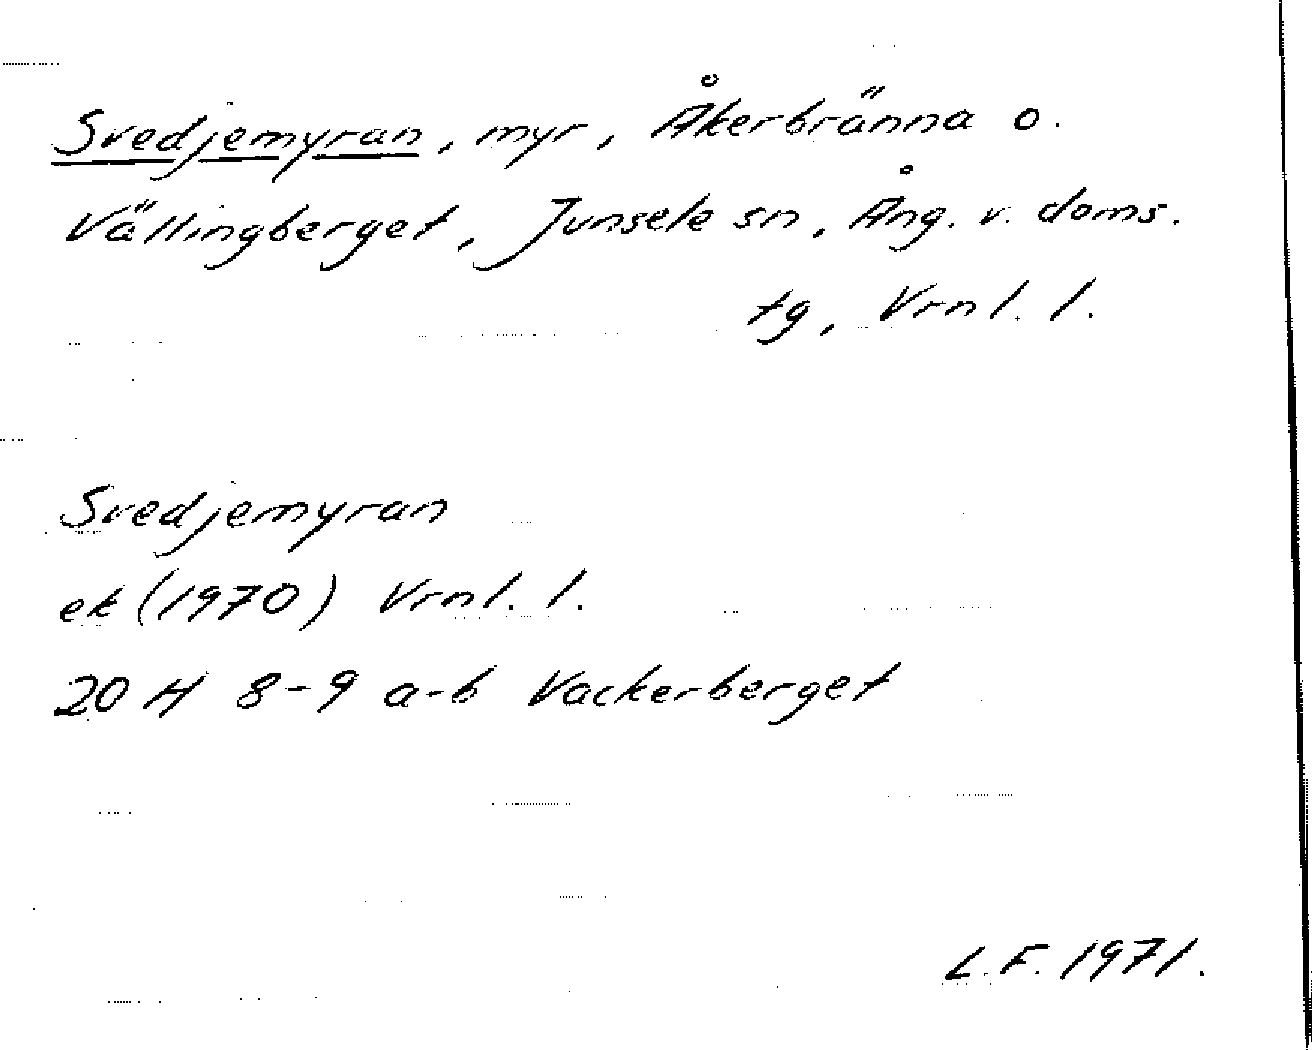 Svedjemyran, myr, Åkerbränna o.
Vällingberget, Junsele sn, Ång. v. doms.
tg, Vrnl. l.
Svedjemyran
ek (1970) Vrnl. l.
20 H 8-9 a-b Vackerberget
L.F. 1971.